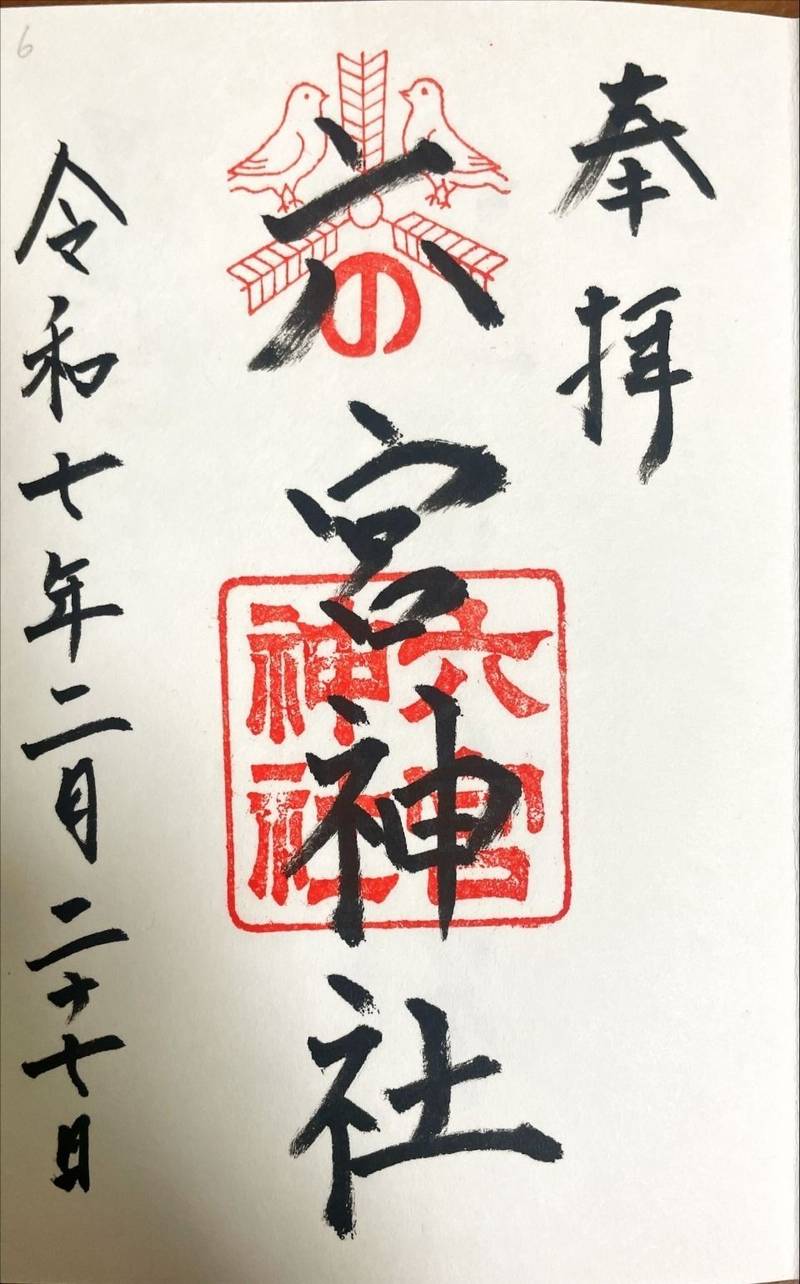 奉拝
六宮神社
の
六宮
神社
令和七年二月二十七日
6